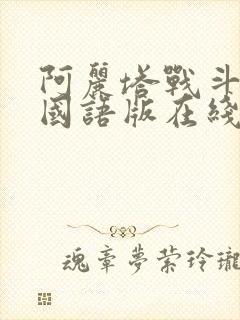 阿麗塔戰斗
國語版在綫
魂牽夢縈玲瓏